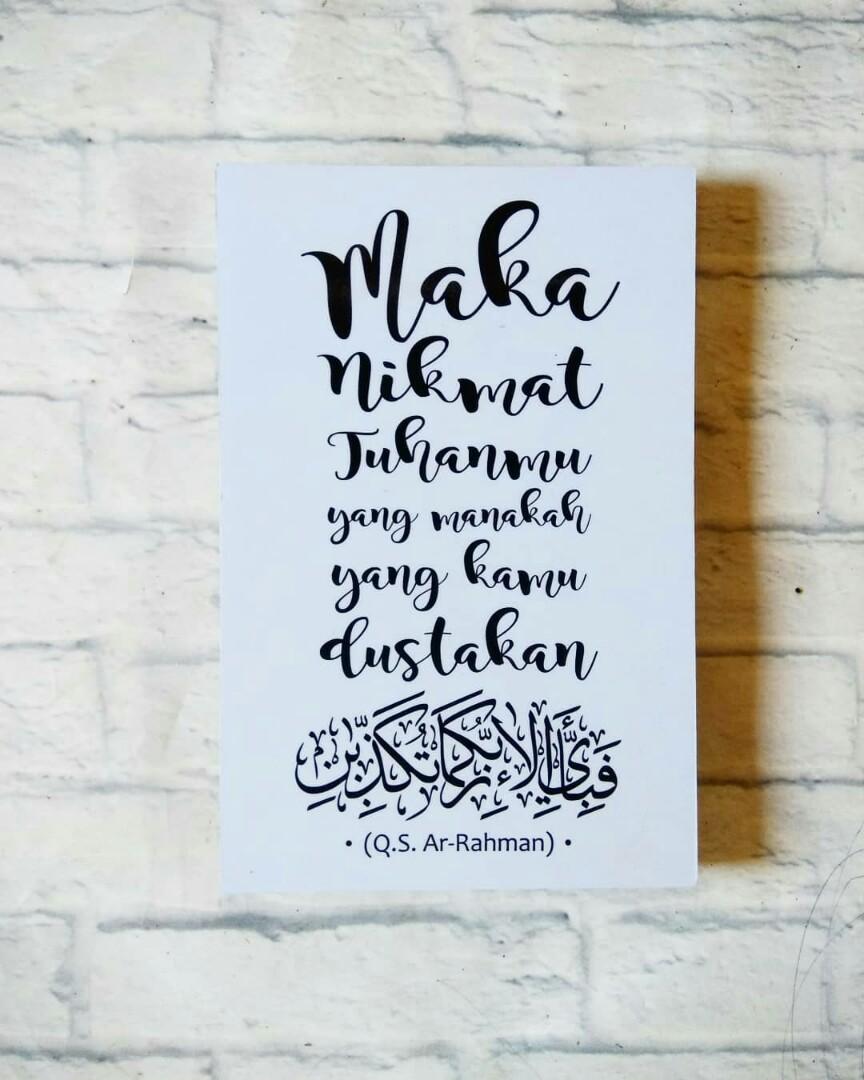 Maka
Nikmat
Tuhanmu
yang manakah
yang kamu
dustakan
فَبِأَيِّ آلَاءِ رَبِّكُمَا تُكَذِّبَانِ
• (Q.S. Ar-Rahman) •